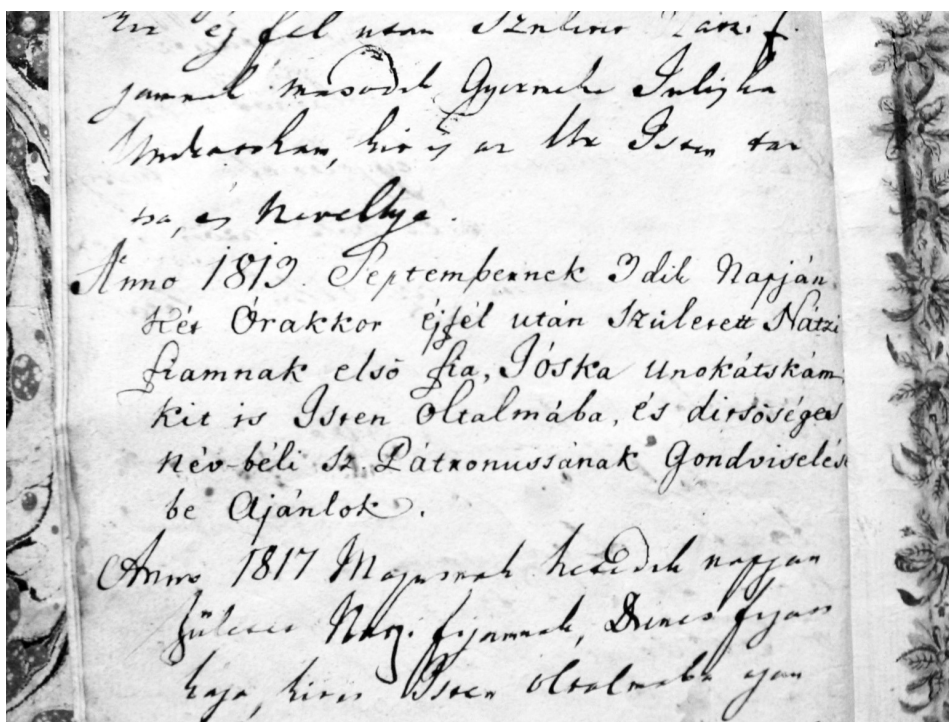 éj fel utan Született Natzi f
jamnak masodik Gyermeke Juliska
Unokatskam, kit is az Ur Isten tar
tsa, és Nevellye.
Anno 1813. Septembernek 3dik Napján
Két Órakkor éjfél után Született Nátzi
fiamnak első fia, Jóska Unokátskám
kit is Isten Oltalmába, és ditsőséges
Név-béli Sz. Pátronussának Gondviselésé
be Ajánlok.
Anno 1817 Majusnak hetedik napjan
Született Natzi fijamnak, Dienes fijats
kaja, kit is Isten oltalmaba ajan